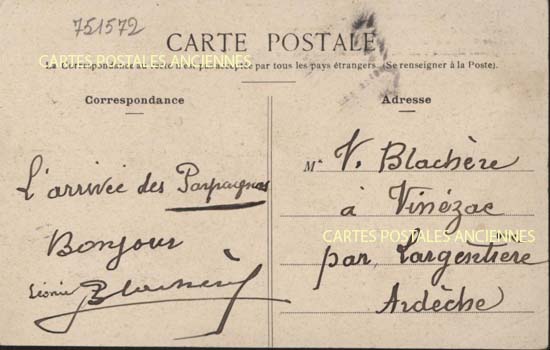 751572
CARTE POSTALE
CARTES POSTALES ANCIENNES
La Correspondance au recto n'est pas acceptée par tous les pays étrangers (Se renseigner à la Poste).
Correspondance
L'arrivée des
Bonjour
Léonie Blachère
Adresse
M V. Blachère
à Vinézac
CARTES POSTALES ANCIENNES
par Largentière
Ardèche